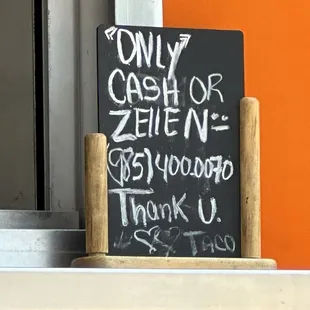 "ONLY"
CASH OR
ZEllE N
(985)400.0070
Thank U.
TACO